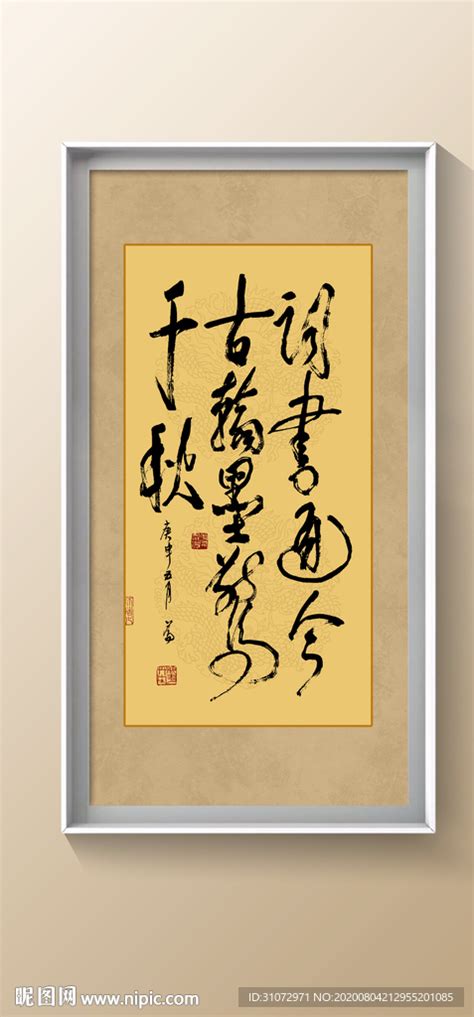 词书通今
古翰墨惊
千秋
庚申五月
昵图网 www.nipic.com
ID:31072971 NO:20200804212955201085